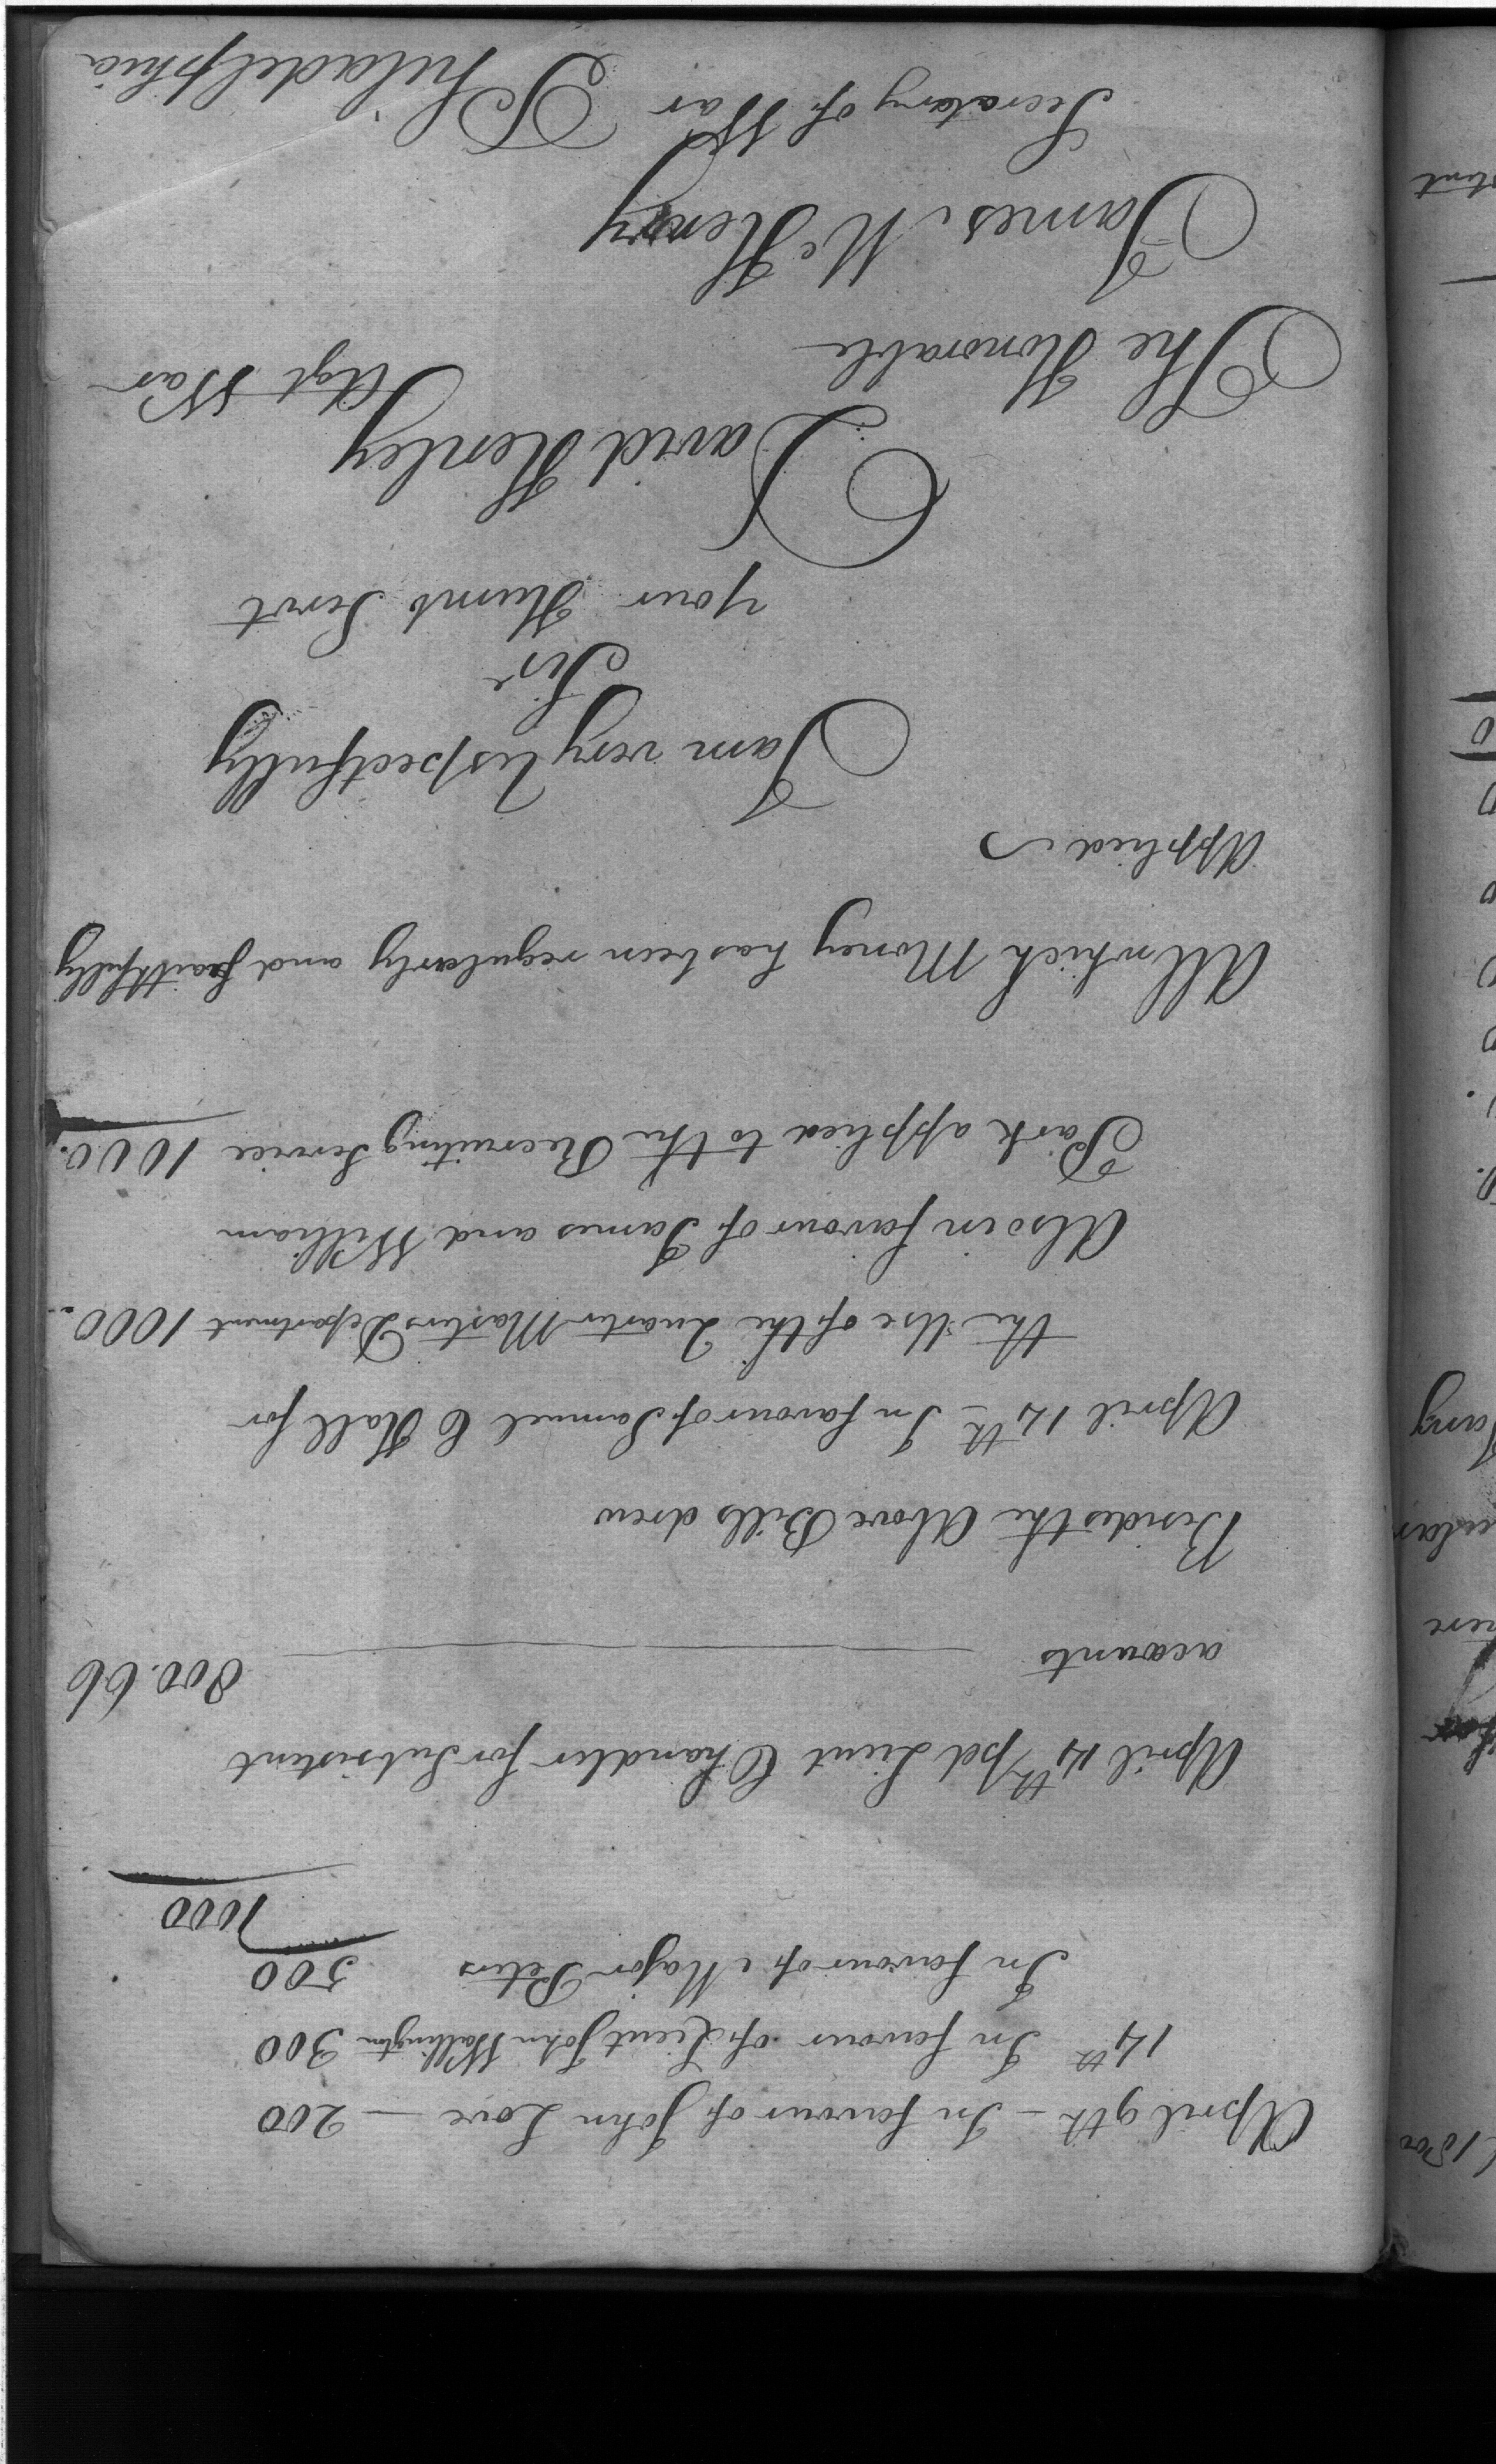 April 9th - In favour of John Love - 200
14th In favour of Lieut John Wallington 300
In favour of Major Peters 500
1000
April 14th pd Lieut Chandler for Subsistent
accounts 800.66
Besides the Above Bills drew
April 14th - In favour of Samuel C Hall for
the Use of the Quarter Masters Department 1000.
Also in favour of James and William
Park applied to the Recruiting Service 1000.
All which Money has been regularly and faithfully
Applied
I am very Respectfully
Sir
your Humb Servt
David Henley
Agt War
The Honorable
James McHenry
Secretary of War Philadelphia